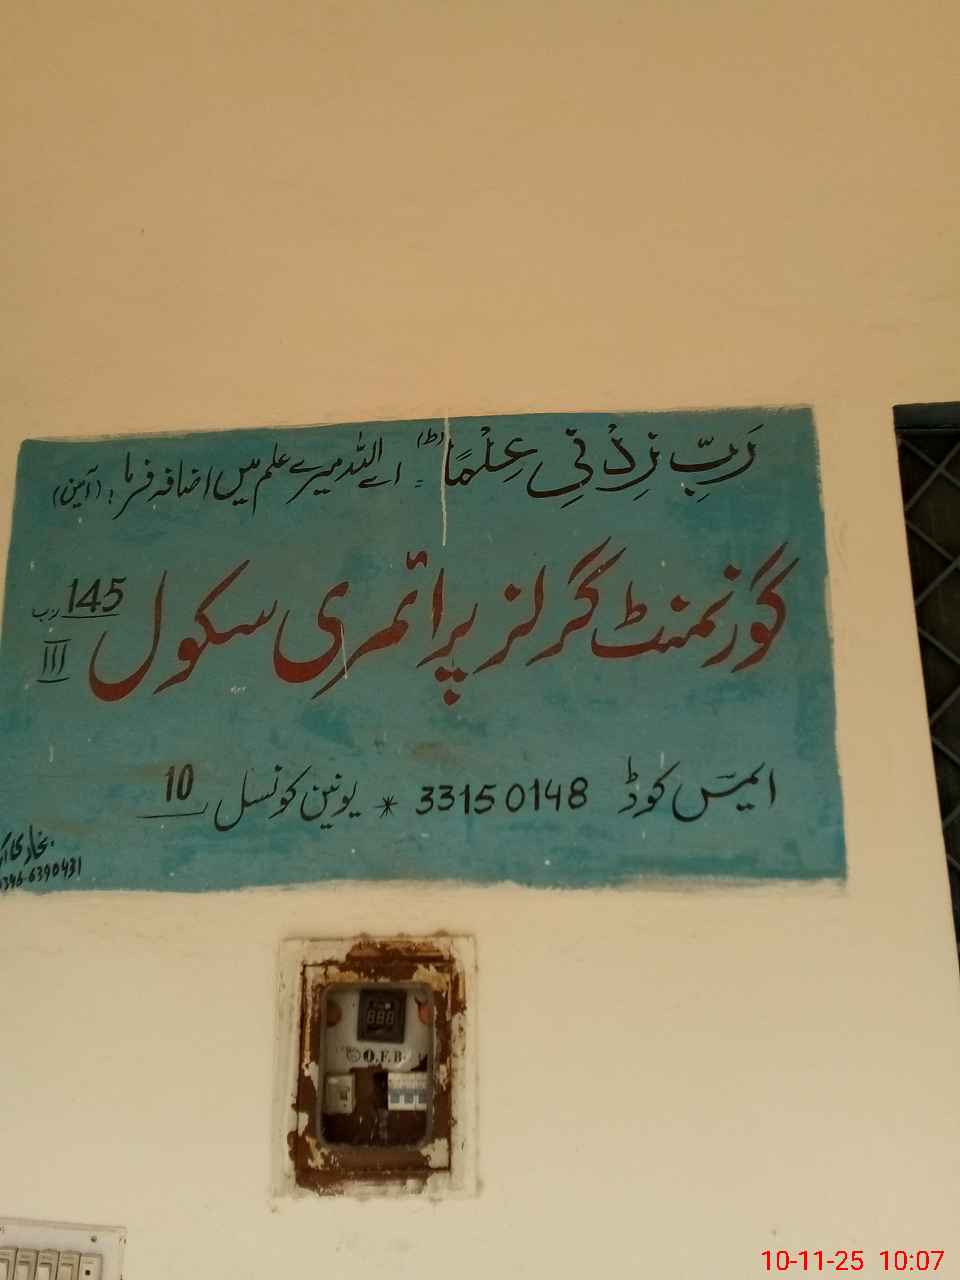 رَبِّ زِدْنِی عِلْمًا (ط) = اے اللہ میرے علم میں اضافہ فرما ! (آمین)
گورنمنٹ گرلز پرائمری سکول 145 رب
III
ایمس کوڈ 33150148 * یونین کونسل 10
بخاری
0346-6390431
O.F.B
10-11-25 10:07